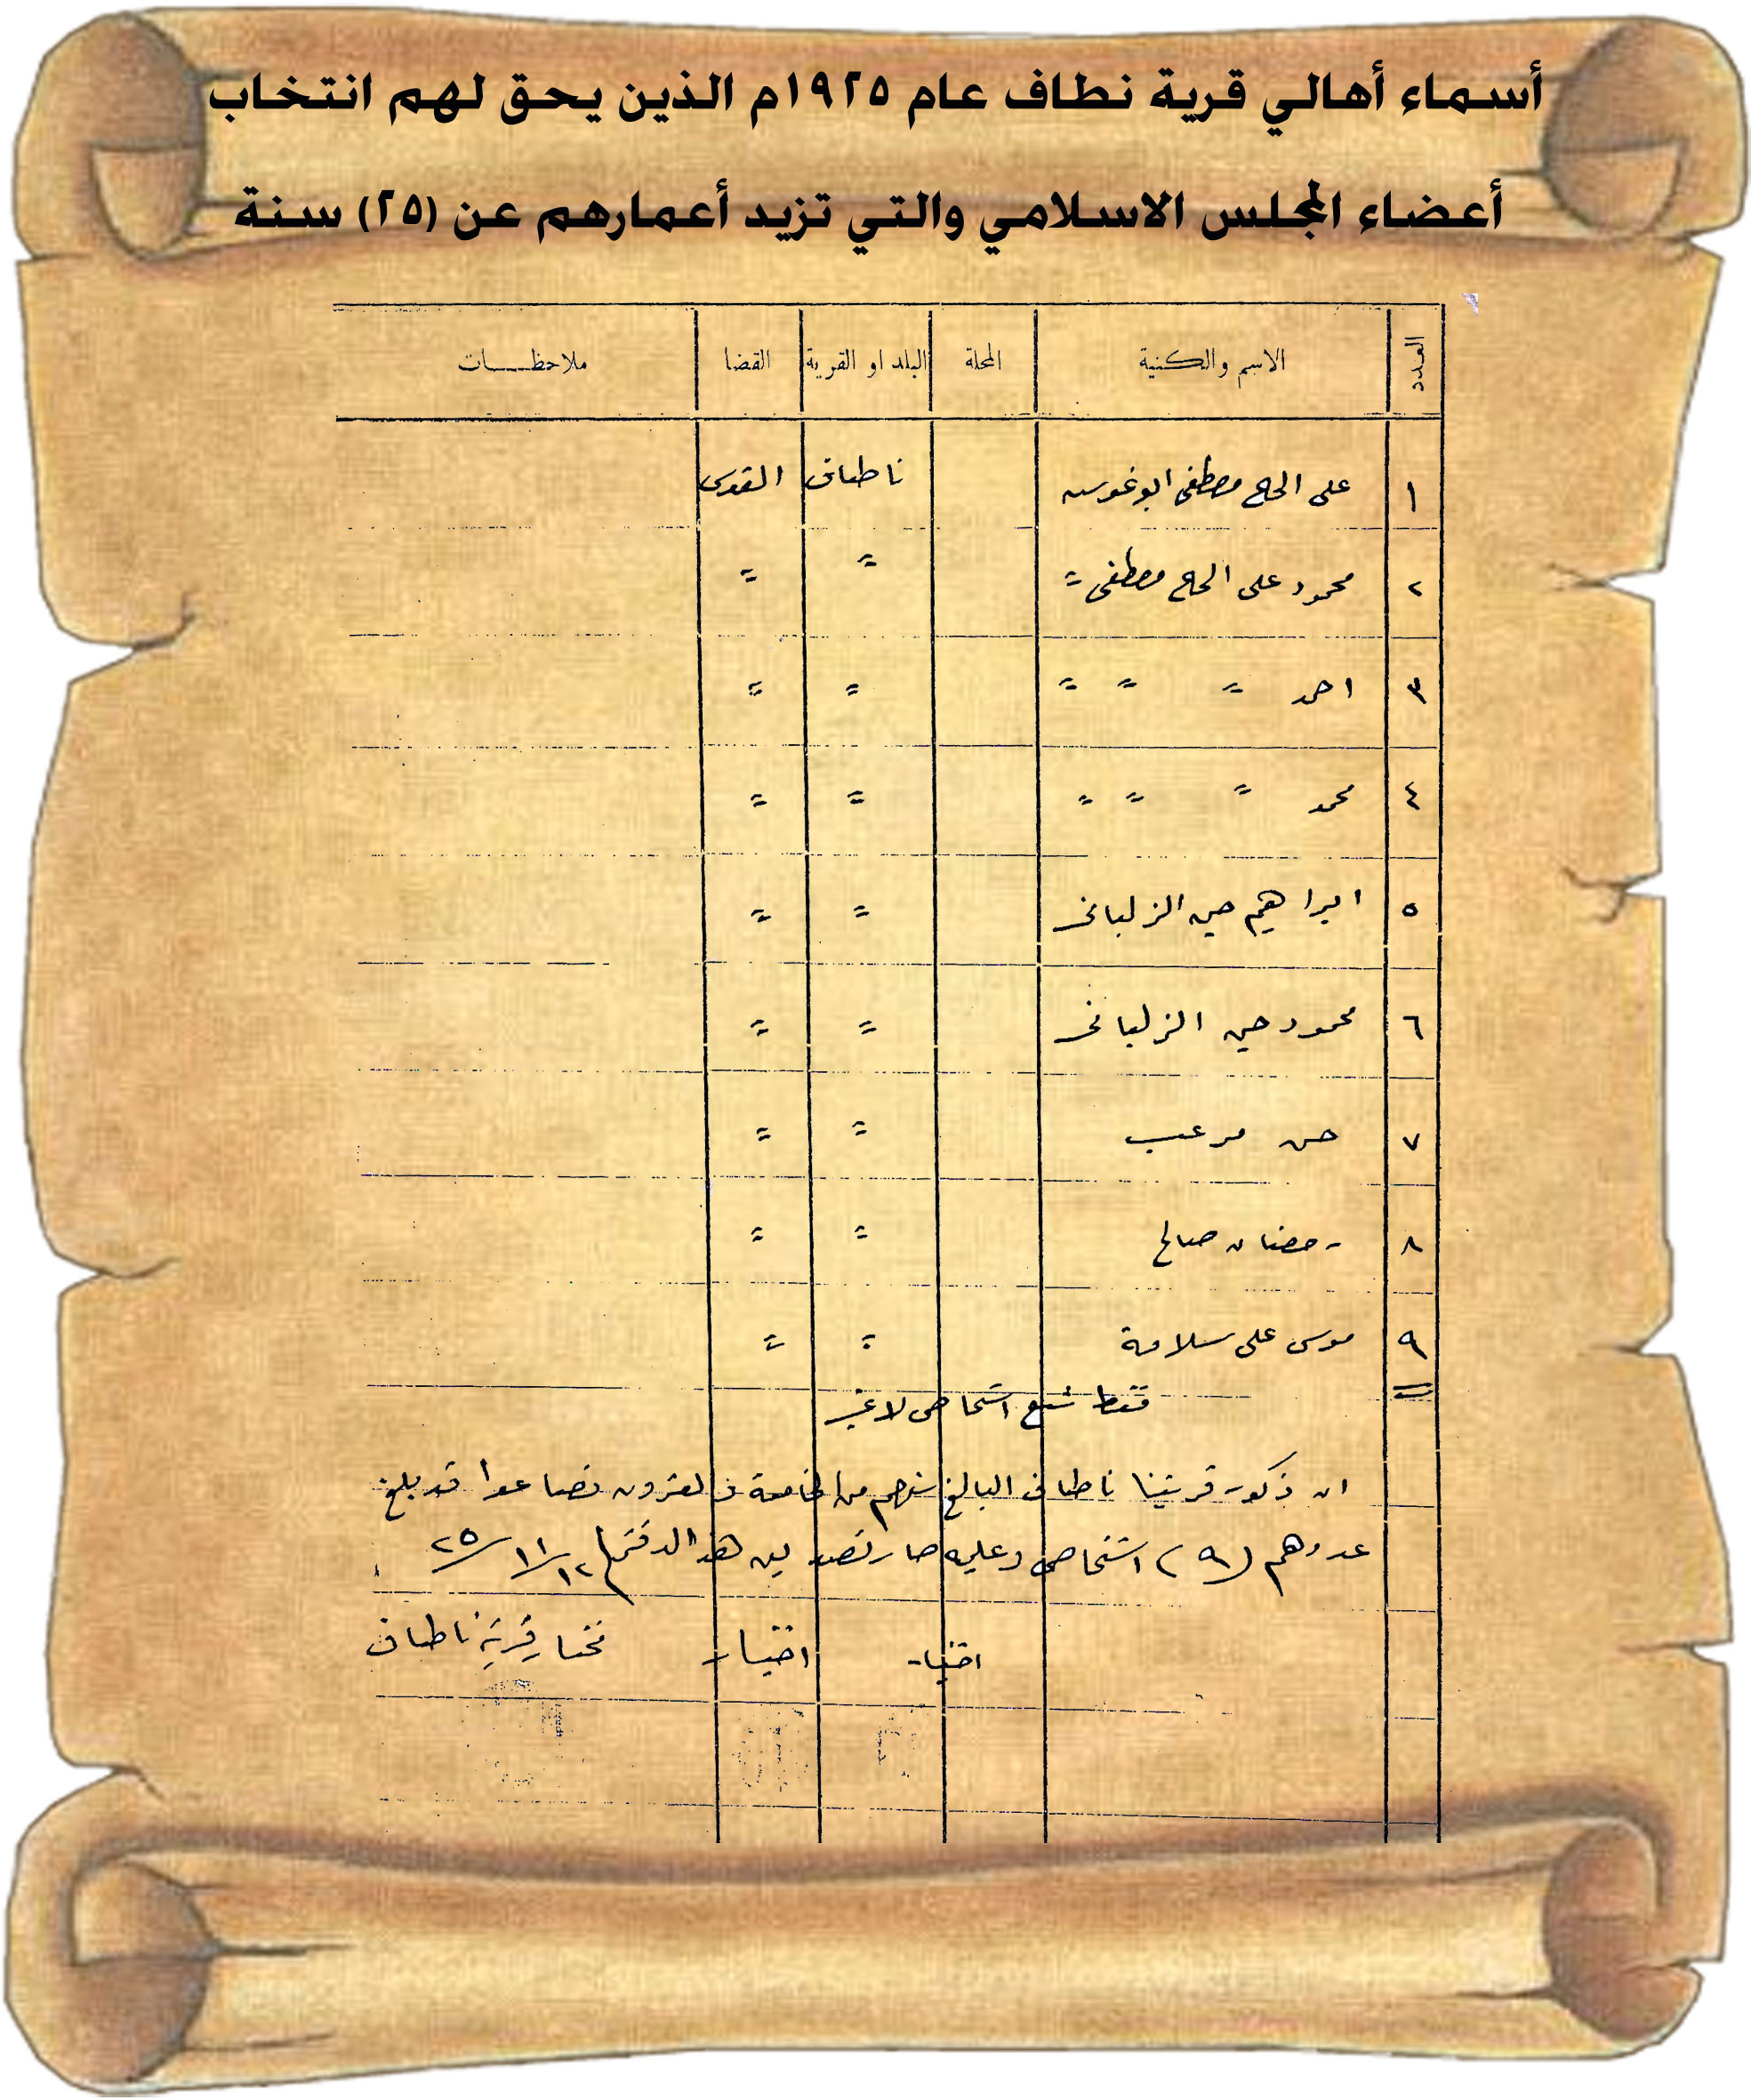 أسماء أهالي قرية نطاف عام ١٩٢٥م الذين يحق لهم انتخاب
أعضاء المجلس الاسلامي والتي تزيد أعمارهم عن (٢٥) سنة
العدد الاسم والكنية المحلة البلد او القرية القضا ملاحظات
١ على الحاج مصطفى ابو غوش ناطاف القدس
٢ محمود على الحاج مصطفى = = =
٣ احمد = = = = =
٤ محمد = = = = =
٥ ابراهيم حسين الزلبانى = =
٦ محمود حسين الزلبانى = =
٧ حسن مرعب = =
٨ رمضان صالح = =
٩ موسى على سلامة = =
فقط تسع اشخاص لا غير
ان ذكور قريتنا ناطاف البالغ سنهم من الخامسة والعشرون فصاعدا قد بلغ
عددهم (٩) اشخاص وعليه صار تصديق هذا الدفتر ١٢/١١/٢٥
اختيار اختيار مختار قرية ناطاف